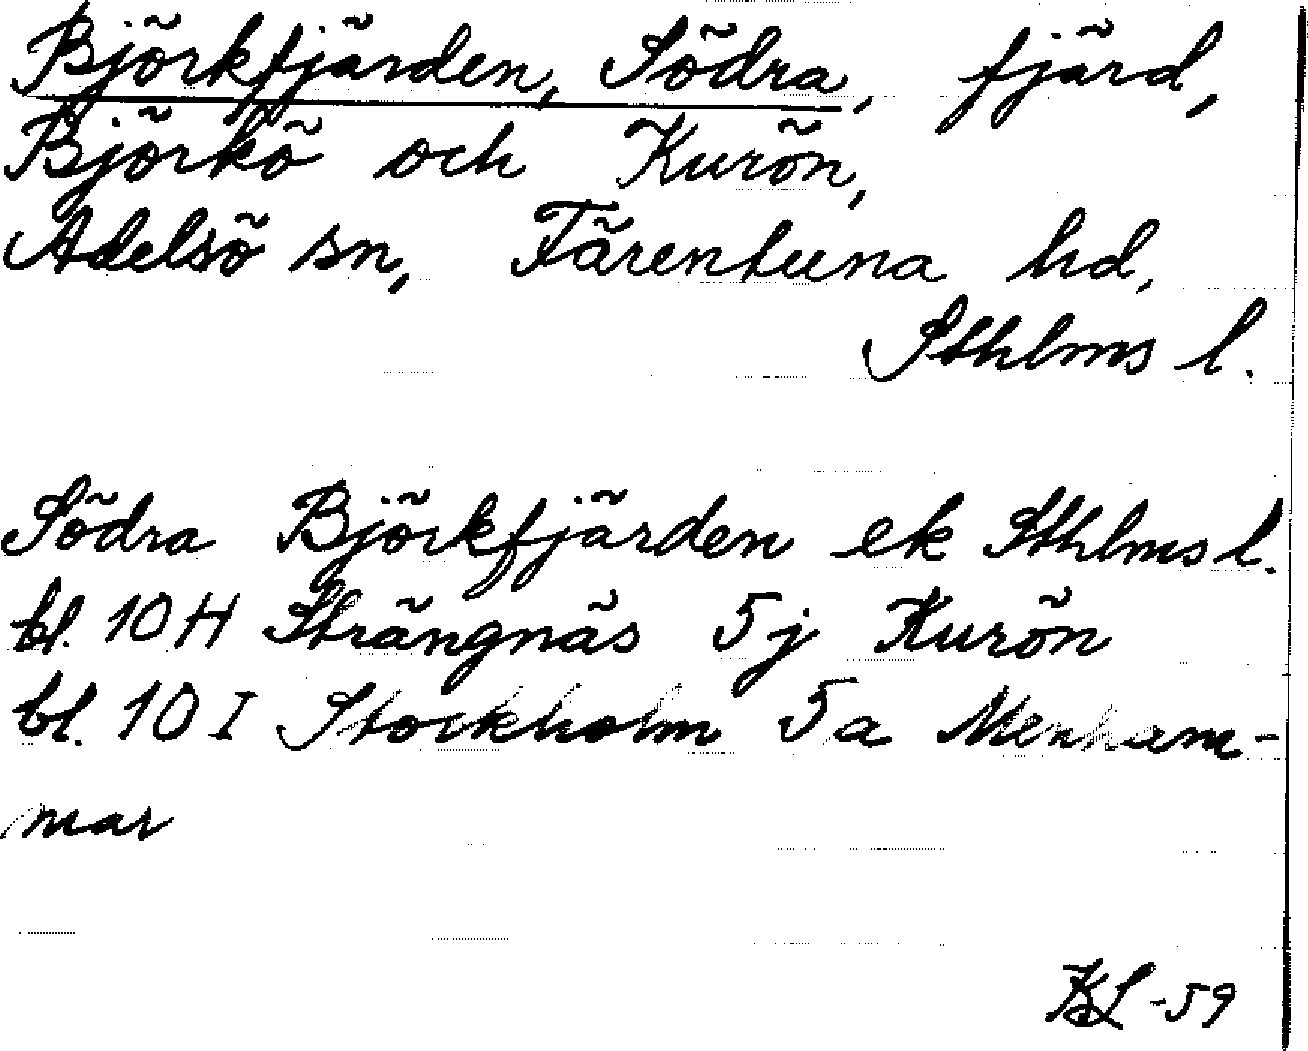 Björkfjärden, Södra, fjärd,
Björkö och Kurön,
Adelsö sn, Färentuna hd,
Sthlms l.
Södra Björkfjärden ek Sthlms l.
bl. 10 H Strängnäs 5 j Kurön
bl. 10 I Stockholm 5 a Menham-
mar
KL -59